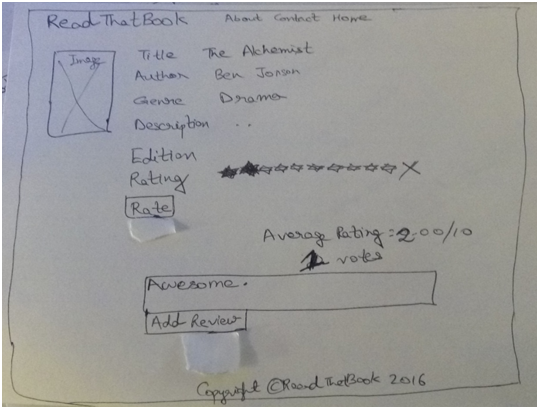 ReadThatBook About Contact Home
Image
Title The Alchemist
Author Ben Jonson
Genre Drama
Description ..
Edition
Rating
Rate
Average Rating : 2.00/10
votes
Awesome.
Add Review
Copyright © ReadThatBook 2016